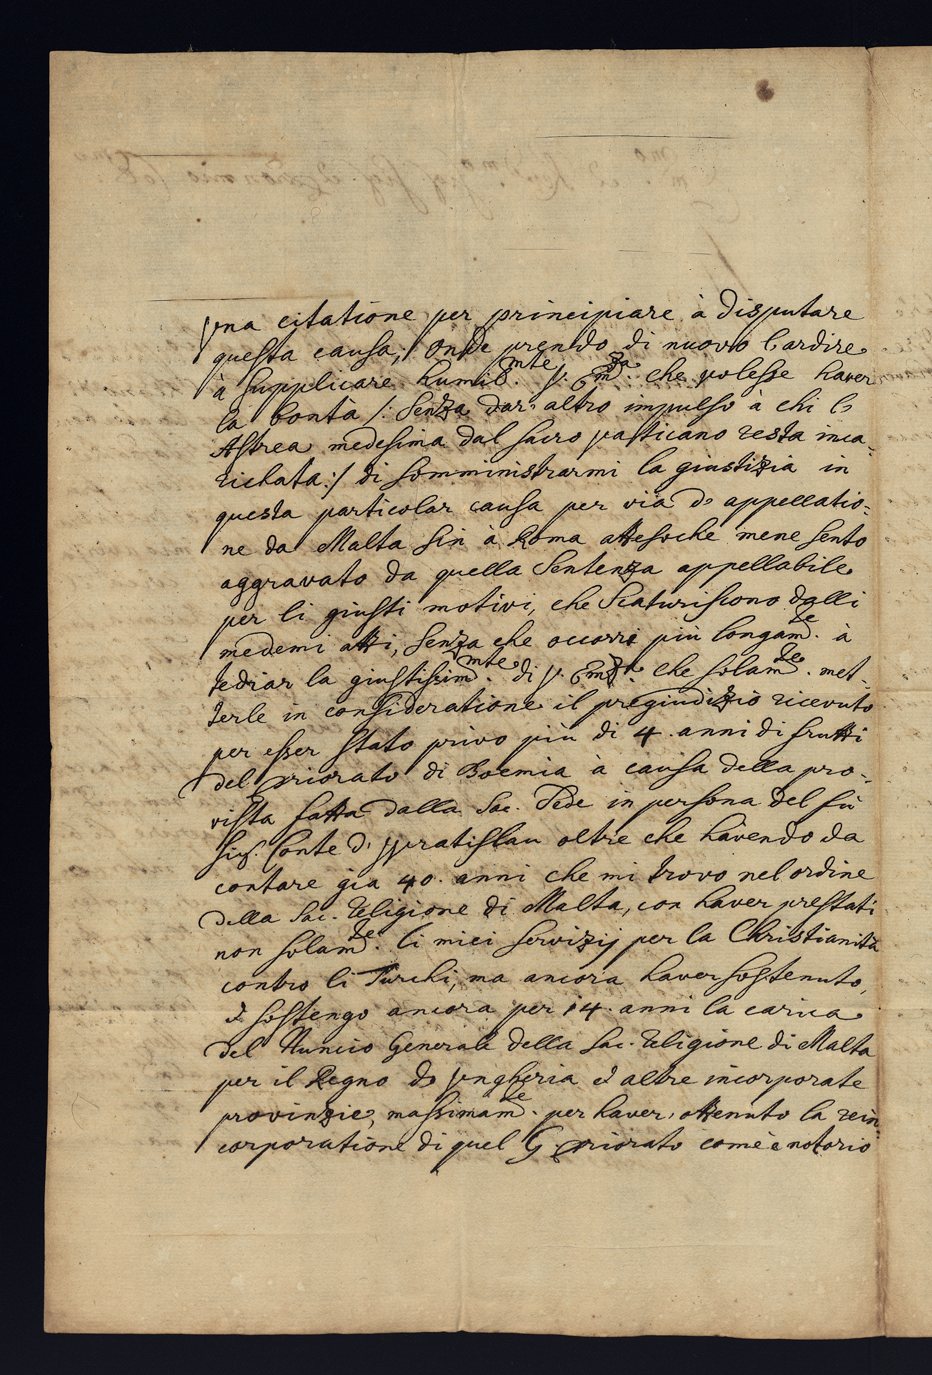 Una citatione per principiare à disputare
questa causa; onde prendo di nuovo l'ardire
à supplicare humilmte V: Emza: che volesse haver
la bontà /: senza dar altro impulso à chi l'
Astrea medesima dal sacro Vatticano resta inca-
richata :/ di somministrarmi la giustizia in
questa particolar causa per via d'appellatio-
ne da Malta sin à Roma attesoche mene sento
aggravato da quella sentenza appellabile
per li giusti motivi, che scaturiscono dalli
medemi atti, senza che occorre più longamte. à
tediar la giustissimmte. di V: Emza. che solamte. met-
terle in consideratione il pregiudizio ricevuto
per esser stato privo più di 4. anni di frutti
del Priorato di Boemia à causa della pro-
vista fatta dalla Sac. Sede in persona del fù
Sigr. Conte d' Wratislau oltre che havendo da
contare gia 40. anni che mi trovo nel ordine
della Sac. Religione di Malta, con haver prestati
non solamte. li miei servizij per la Christianità
contro li Turchi, ma ancora haver sostenuto,
et sostengo ancora per 14. anni la carica
del Nuncio Generale della Sac. Religione di Malta
per il Regno d'Ungheria et altre incorporate
provinzie, massimamte. per haver ottenuto la rein-
corporatione di quel G. Priorato come è notorio